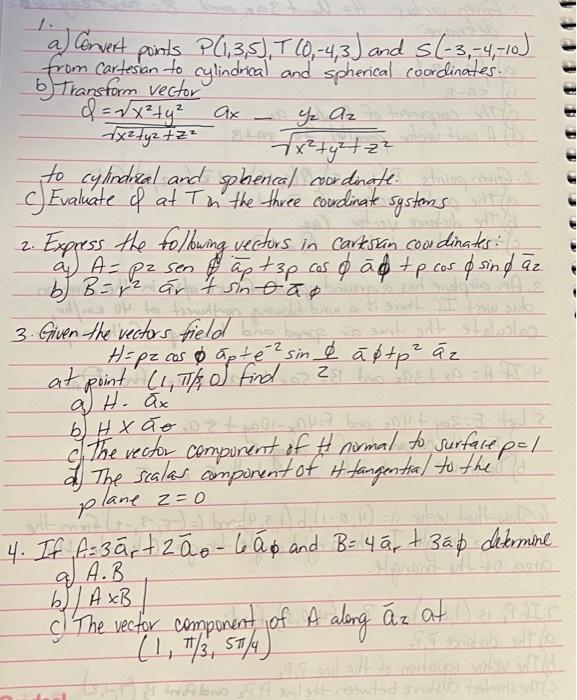 1.
a) Convert points P(1,3,5), T(0,-4,3) and S(-3,-4,-10)
from Cartesian to cylindrical and spherical coordinates.
b) Transform vector
Q = √x²+y² / √x²+y²+z² ax - yz az / √x²+y²+z²
to cylindrical and spherical coordinate.
c) Evaluate Q at T in the three coordinate systems
2. Express the following vectors in cartesian coordinates:
a) A = ρz sen ϕ āρ + 3ρ cos ϕ āϕ + ρ cos ϕ sin ϕ āz
b) B = r² ār + sin θ āϕ
3. Given the vectors field
H = ρz cos ϕ āρ + e⁻² sin ϕ/2 āϕ + ρ² āz
at point (1, π/3, 0) find
a) H · āx
b) H × āθ
c) The vector component of H normal to surface ρ=1
d) The scalar component of H tangential to the
plane z = 0
4. If A = 3ār + 2āθ - 6āϕ and B = 4ār + 3āϕ determine
a) A.B
b) |A×B|
c) The vector component of A along āz at
(1, π/3, 5π/4)